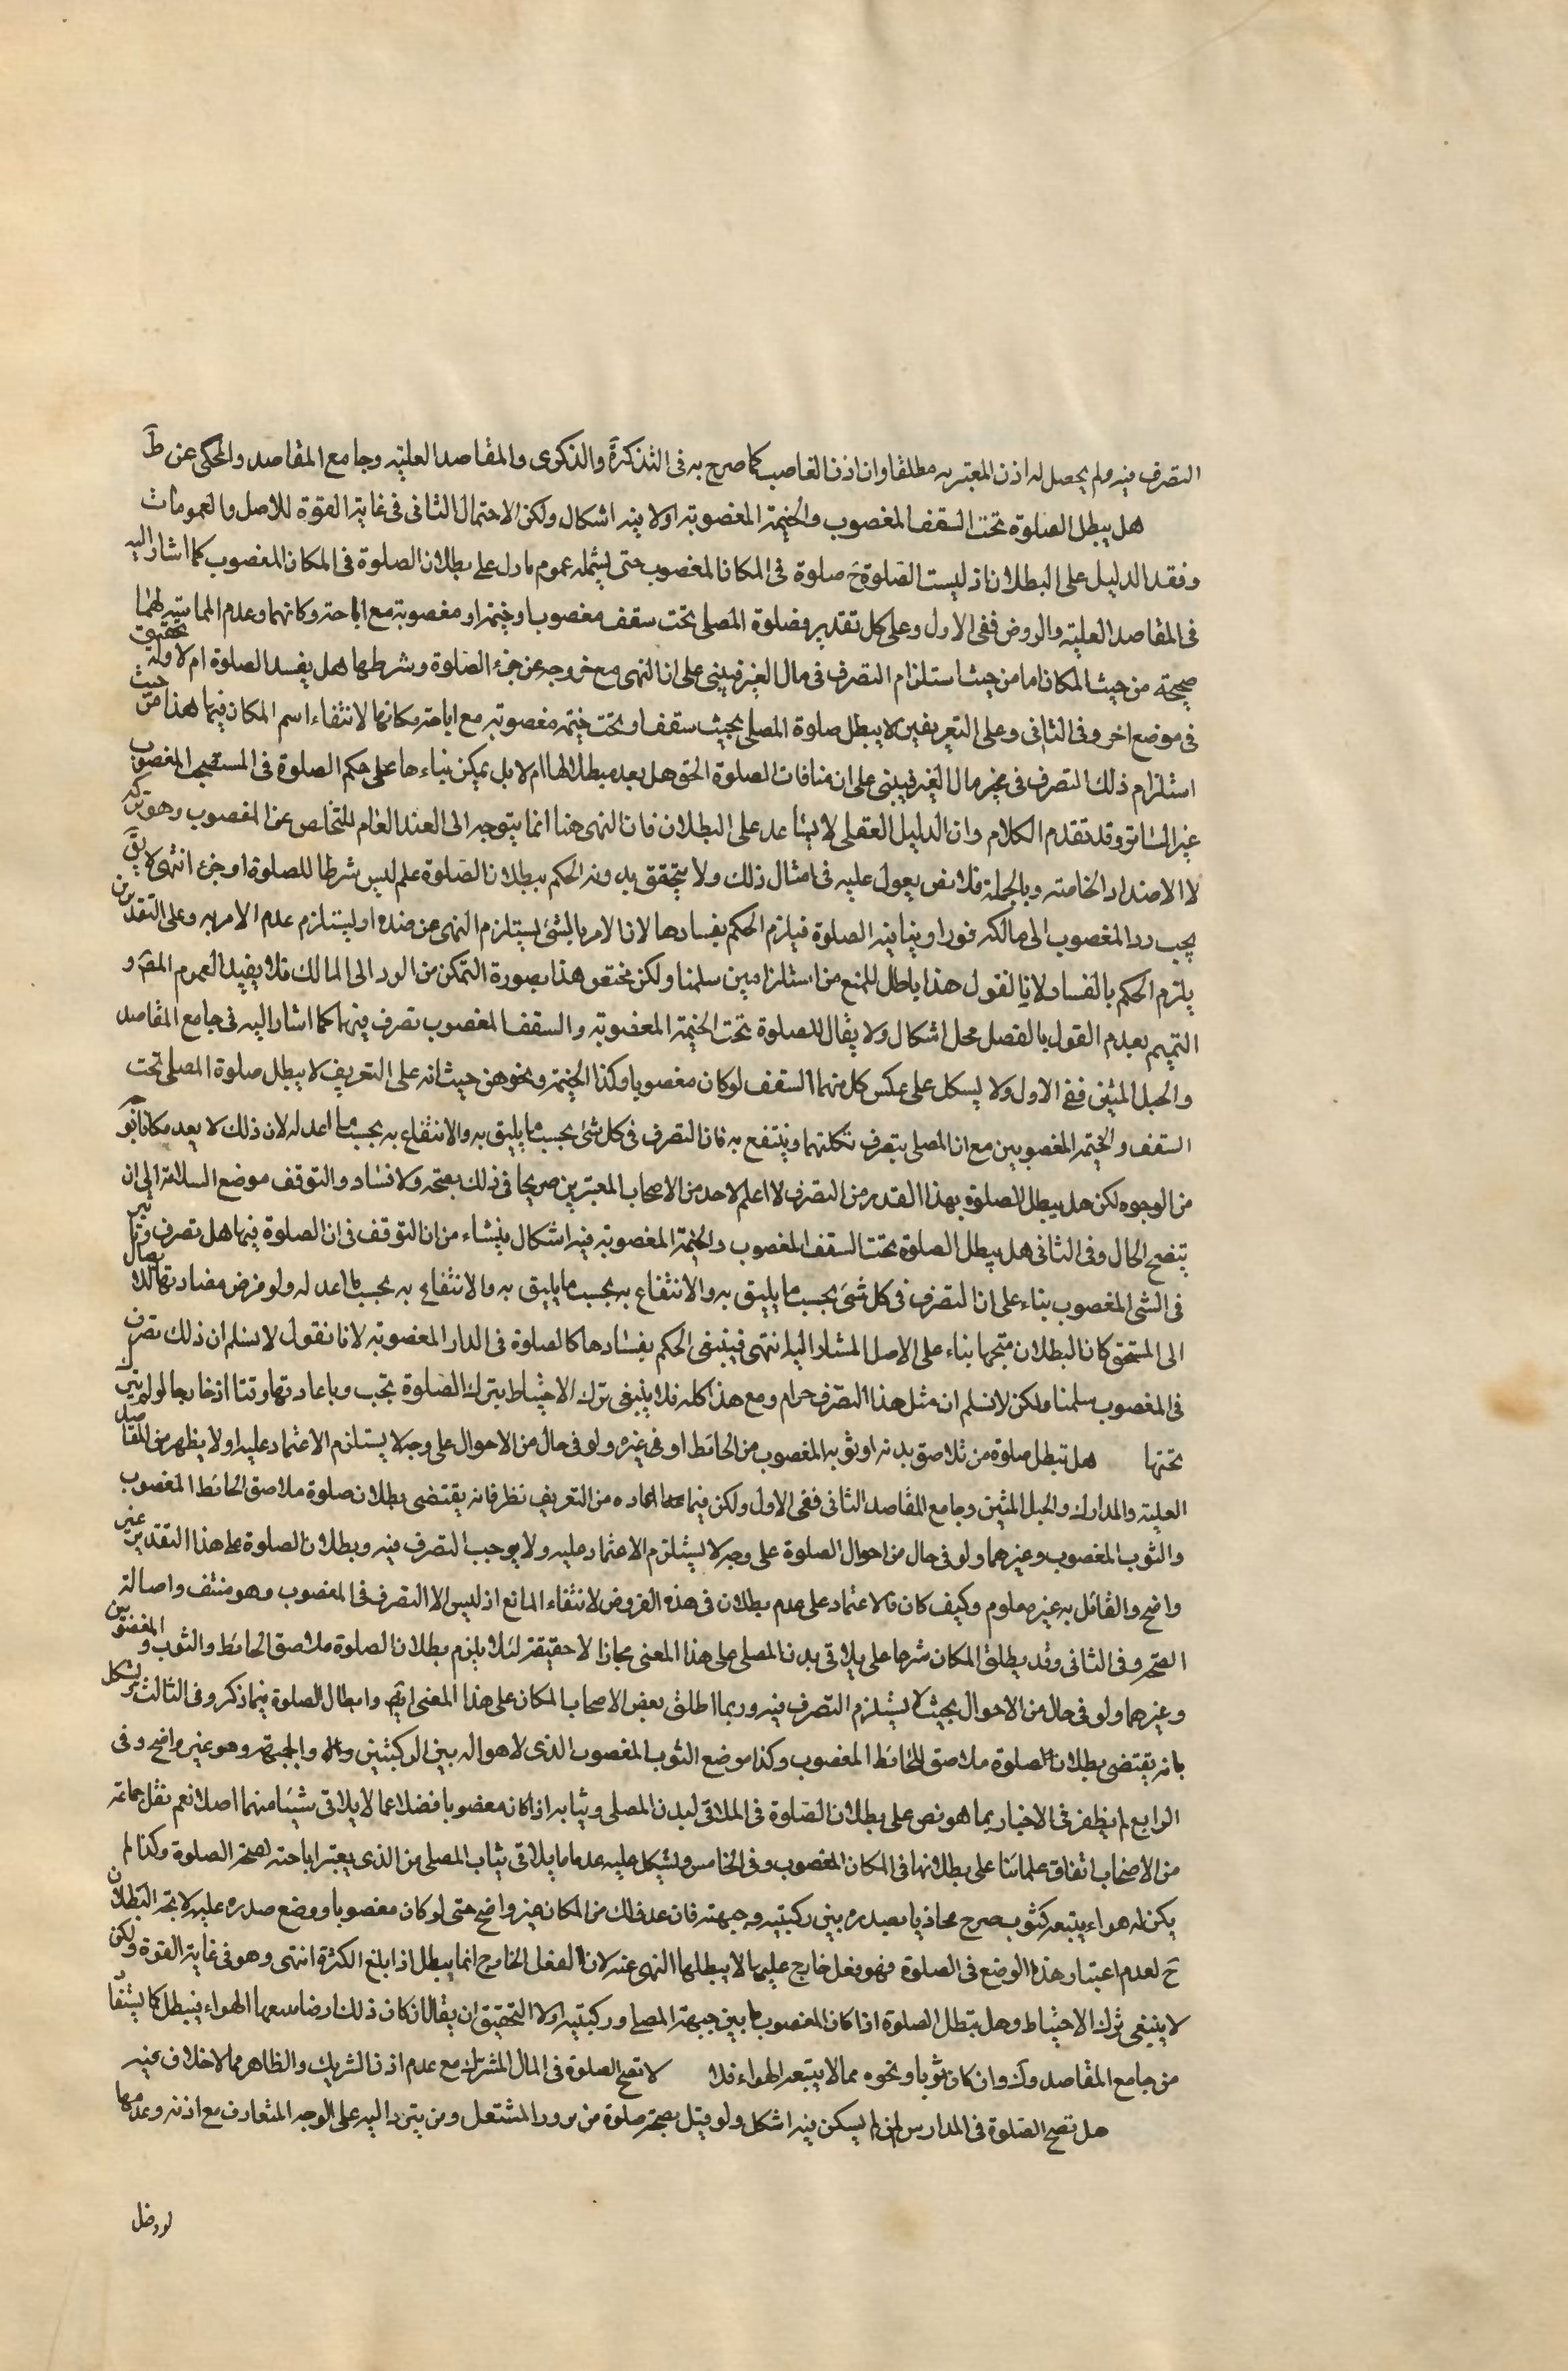 التصرف فيه ولم يحصل له اذن المعتبر به مطلقا وان اذن الغاصب كما صرح به فى التذكرة والذكرى والمقاصد العليّه وجامع المقاصد والمحكى عن ط
هل يبطل الصلوة تحت السقف المغصوب والخيمة المغصوبة اولا فيه اشكال ولكن الاحتمال الثانى فى غاية القوة للاصل والعمومات
وفقد الدليل على البطلان اذ ليست الصلوة ح صلوة فى المكان المغصوب حتى يشمله عموم ما دل على بطلان الصلوة فى المكان المغصوب كما اشار اليه
فى المقاصد العليّه والروض ففى الاول وعلى كل تقدير فصلوة المصلى تحت سقف مغصوب او خيمة او مغصوبة مع اباحة مكانهما وعدم المماسة لهما
صحيحة من حيث المكان اما من حيث استلزام التصرف فى مال الغير فيبنى على ان النهى مع خروجه عن جزء الصلوة وشرطها هل يفسد الصلوة ام لا وله تحقيق
فى موضع اخر وفى الثانى وعلى التعريفين لا يبطل صلوة المصلى بحيث سقف او تحت خيمة مغصوبة مع اباحة مكانها لانتفاء اسم المكان فيها هذا من حيث
استلزام ذلك التصرف فى مال الغير فيبنى على ان منافات الصلوة الحق هل يعد مبطلا لها ام لا بل يمكن بناءها على حكم الصلوة فى المستصحب المغصوب
غير الساتر وقد تقدم الكلام وان الدليل العقلى لا يساعد على البطلان فان النهى هنا انما يتوجه الى العند العام للتخلص عن المغصوب وهو تركه
لا الاضداد الخاصة وبالجملة فلا نص يعول عليه فى امثال ذلك ولا يتحقق بدونه الحكم ببطلان الصلوة علم ليس شرطا للصلوة او جزء انتهى لا يق
يجب رد المغصوب الى مالكه فورا وينافيه الصلوة فيلزم الحكم بفسادها لان الامر بالشئ يستلزم النهى عن ضده او يستلزم عدم الامر به وعلى التقديرين
يلزم الحكم بالفساد لانا نقول هذا باطل للمنع من استلزامين سلمنا ولكن مختص هذا بصورة التمكن من الرد الى المالك فلا يفيد العموم المق و
التميم بعدم القول بالفصل محل اشكال ولا يقال الصلوة تحت الخيمة المغصوبة والسقف المغصوب تصرف فيهما كما اشار اليه فى جامع المقاصد
والحبل المتين ففى الاول ولا يسكل على عكس كل منهما السقف لو كان مغصوبا وكذا الخيمة ونحوه من حيث انه على التعريف لا يبطل صلوة المصلى تحت
السقف والخيمة المغصوبين مع ان المصلى يتصرف بكلتهما وينتفع به فان التصرف فى كل شئ بحسب ما يليق به والانتفاع به بحسب ما اعد له لان ذلك لا يعد مكانا بو
من الوجوه لكن هل يبطل الصلوة بهذا القدر من التصرف لا اعلم لاحد من الاصحاب المعتبرين صريحا فى ذلك بصحة ولا فساد والتوقف موضع السلامة الى ان
يتضح الحال وفى الثانى هل يبطل الصلوة تحت السقف المغصوب والخيمة المغصوبة فيه اشكال ينشاء من ان التوقف فى ان الصلوة فيها هل تصرف
فى الشى المغصوب بناء على ان التصرف فى كل شئ بحسب ما يليق به والانتفاع به بحسب ما يليق به والانتفاع به بحسب ما اعد له ولو فرض مضادتها للايصال
الى المستحق كان البطلان متجها بناء على الاصل المشار اليه انتهى فينبغى الحكم بفسادها كالصلوة فى الدار المغصوبة لانا نقول لا نسلم ان ذلك تصرف
فى المغصوب سلمنا ولكن لا نسلم ان مثل هذا التصرف حرام ومع هذا كله فلا ينبغى ترك الاحتياط بترك الصلوة تحت وباعادتها وقتا او خارجا لو اتى
تحتها هل تبطل صلوة من تلاصق بدنه او ثوبه المغصوب من الحائط او فى غيره ولو فى حال من الاحوال على وجه لا يستلزم الاعتماد عليه اولا يظهر من المقاصد
العليّه والمدارك والحبل المتين وجامع المقاصد الثانى ففى الاول ولكن فيما افاده من التعريف نظر فانه يقتضى بطلان صلوة ملاصق الحائط المغصوب
والثوب المغصوب وغيرهما ولو فى حال من احوال الصلوة على وجه لا يستلزم الاعتماد عليه ولا يوجب التصرف فيه وبطلان الصلوة على هذا التقدير غير
واضح والقائل به غير معلوم وكيف كان فالاعتماد على عدم بطلان فى هذه الفروض لانتفاء المانع اذ ليس الا التصرف فى المغصوب وهو منتف واصالة
الصحة وفى الثانى وقد يطلق المكان شرعا على ما يلاقى بدن المصلى على هذا المعنى مجازا لا حقيقة لئلا يلزم بطلان الصلوة ملاصق الحائط والثوب المغصوبين
وغيرهما ولو فى حال من الاحوال بحيث لا يستلزم التصرف فيه وربما اطلق بعض الاصحاب المكان على هذا المعنى ايضا وابطال الصلوة فيما ذكر وفى الثالث يشكل
بانه يقتضى بطلان الصلوة ملاصق الحائط المغصوب وكذا موضع الثوب المغصوب الذى لا هوا له بين الركبتين والجبهة وهو غير واضح وفى
الرابع لم يظفر فى الاخبار بما هو نص على بطلان الصلوة فى الملاقى لبدن المصلى وثيابه اذا كان مغصوبا فضلا عما لا يلاقى شيئا منهما اصلا نعم نقل جماعة
من الاصحاب اتفاق علمائنا على بطلانها فى المكان المغصوب وفى الخامس ويشكل عليه عد ما يلاقى ثياب المصلى من الذى يعتبر اباحته لصحة الصلوة وكذا لم
يكن له هواء يتبعه كثوب صرح محاذيا بصدره بين ركبتيه وجبهته فان عد ذلك من المكان غير واضح حتى لو كان مغصوبا ووضع صدره عليه لا يتجه البطلان
ح لعدم اعتبار هذا الوضع فى الصلوة فهو فعل خارج عليها لا يبطلها النهى عنه لان الفعل الخارج انما يبطل اذا بلغ الكثرة انتهى وهو فى غاية القوة ولكن
لا ينبغى ترك الاحتياط وهل تبطل الصلوة اذا كان المغصوب ما بين جبهة المصلى وركبتيه اولا التحقيق ان يقال ان كان ذلك ارضا يتبعها الهواء فيبطل كما يستفاد
من جامع المقاصد وك وان كان ثوبا ونحوه مما لا يتبعه الهواء فلا لا تصح الصلوة فى المال المشترك مع عدم اذن الشريك والظاهر مما لا خلاف فيه
هل تصح الصلوة فى المدارس لمن لم يسكن فيه اشكل ولو قيل بصحة صلوة من يرود المشتغل ومن يتردد اليه على الوجه المتعارف مع اذنه وعدمها
لو دخل